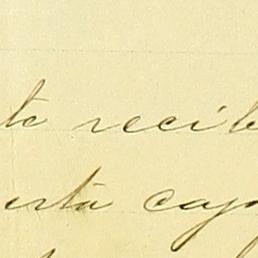 te recib
esta cap